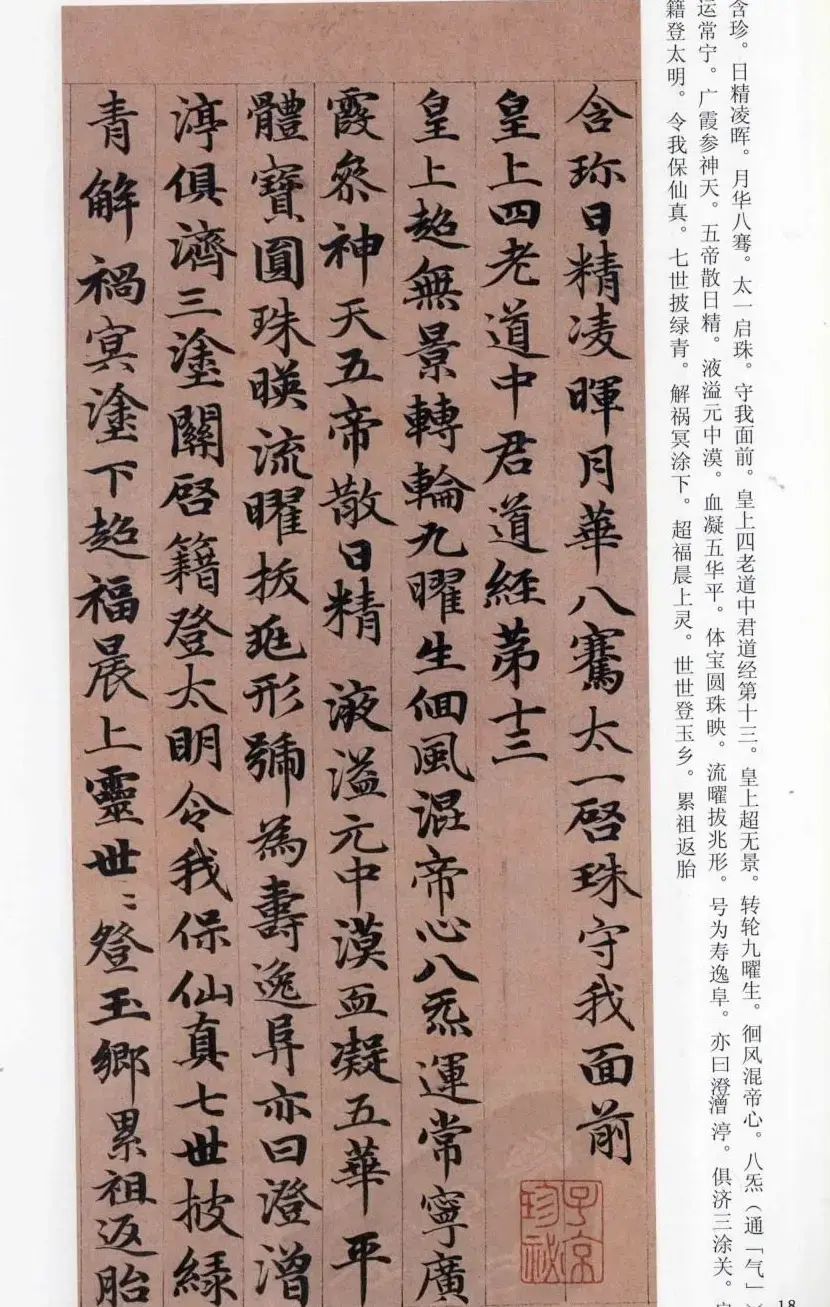 含珍。日精凌晖。月华八骞。太一启珠。守我面前。皇上四老道中君道经第十三。皇上超无景。转轮九曜生。徊风混帝心。八炁（通「气」）
运常宁。广霞参神天。五帝散日精。液溢元中漠。血凝五华平。体宝圆珠映。流曜拔兆形。号为寿逸阜。亦曰澄澘渟。俱济三涂关。
籍登太明。令我保仙真。七世披绿青。解祸冥涂下。超福晨上灵。世世登玉乡。累祖返胎
含珎日精凌暉月華八騫太一啓珠守我面前
皇上四老道中君道經第十三
皇上超無景轉輪九曜生佪風混帝心八炁運常寧廣
霞叅神天五帝散日精 液溢元中漠血凝五華平
體寶圓珠暎流曜拔兆形號為壽逸阜亦曰澄澘
渟俱濟三塗關啓籍登太明令我保仙真七世披緑
青解禍冥塗下超福晨上靈世〻登玉鄉累祖返胎
子京
珍秘
18